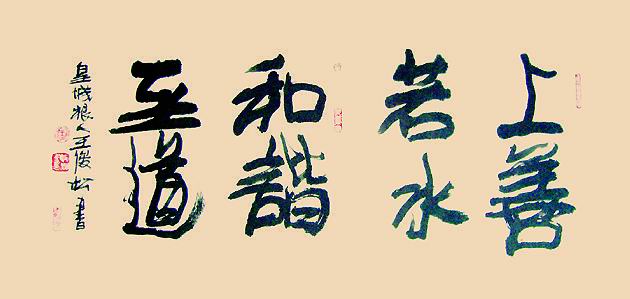 上善
若水
和諧
至道
皇城根人王俊松書